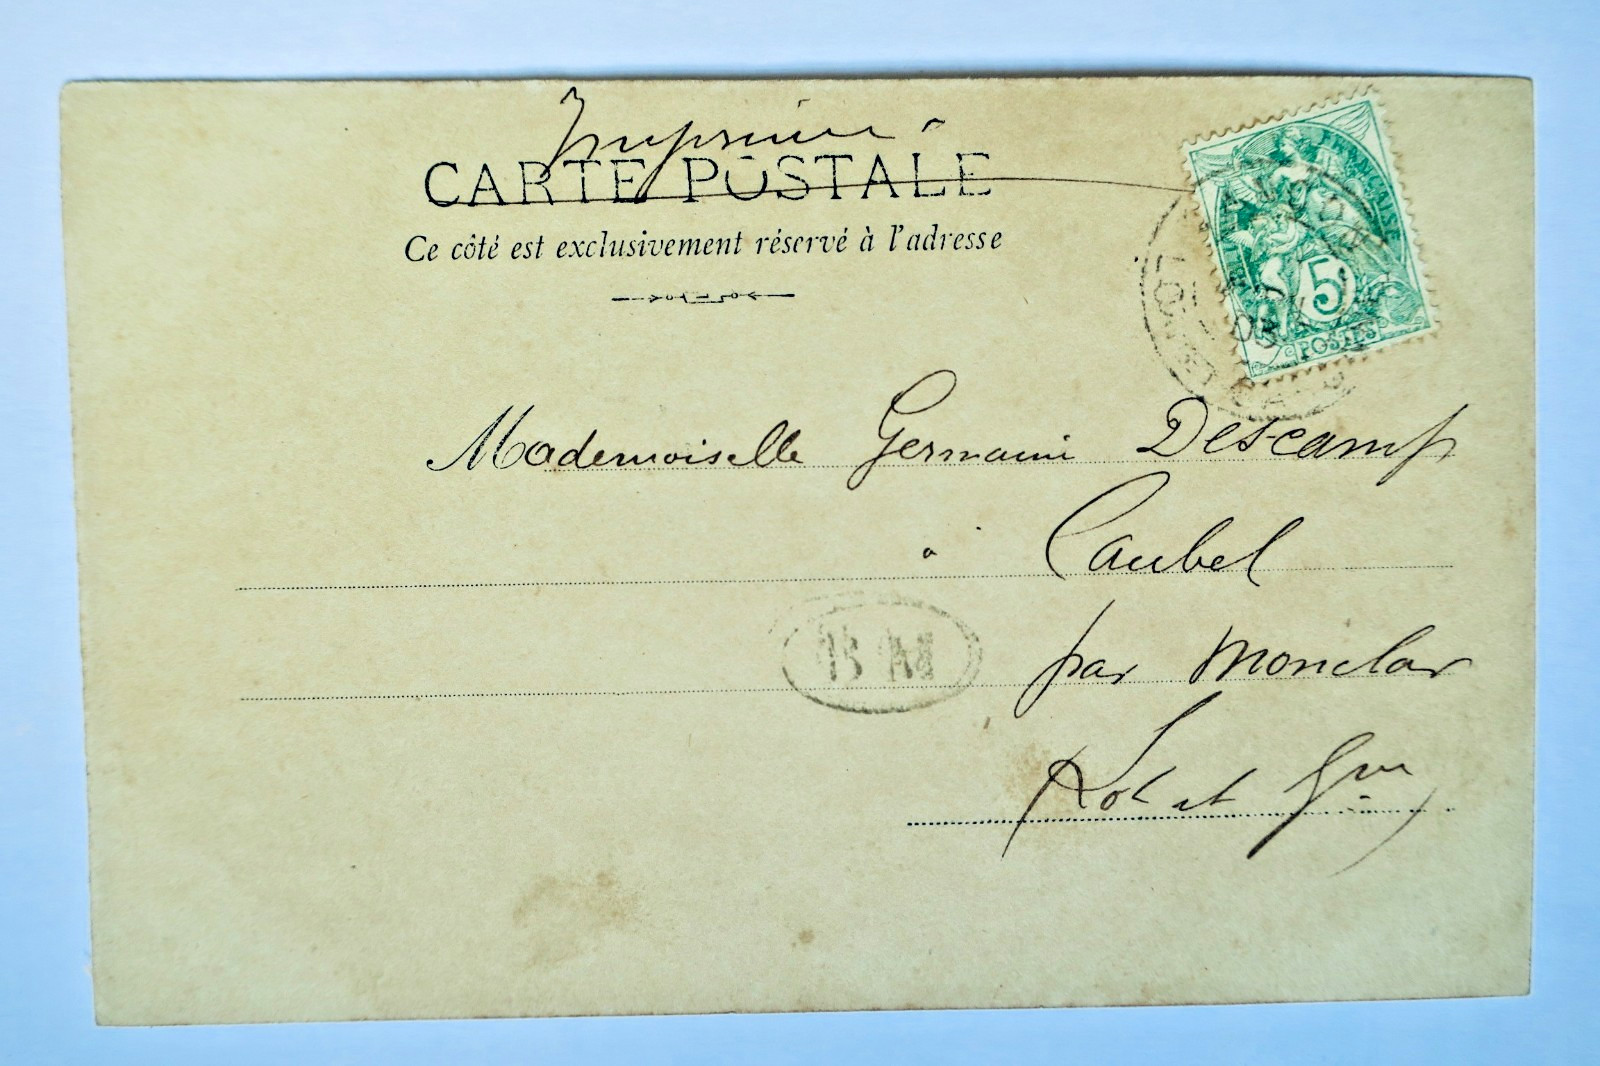 Imprimé
CARTE POSTALE
Ce côté est exclusivement réservé à l'adresse
FRANÇAISE
5
POSTES
LOT
Mademoiselle Germaine Descamps
à Caubel
par Monclar
Lot et Gne